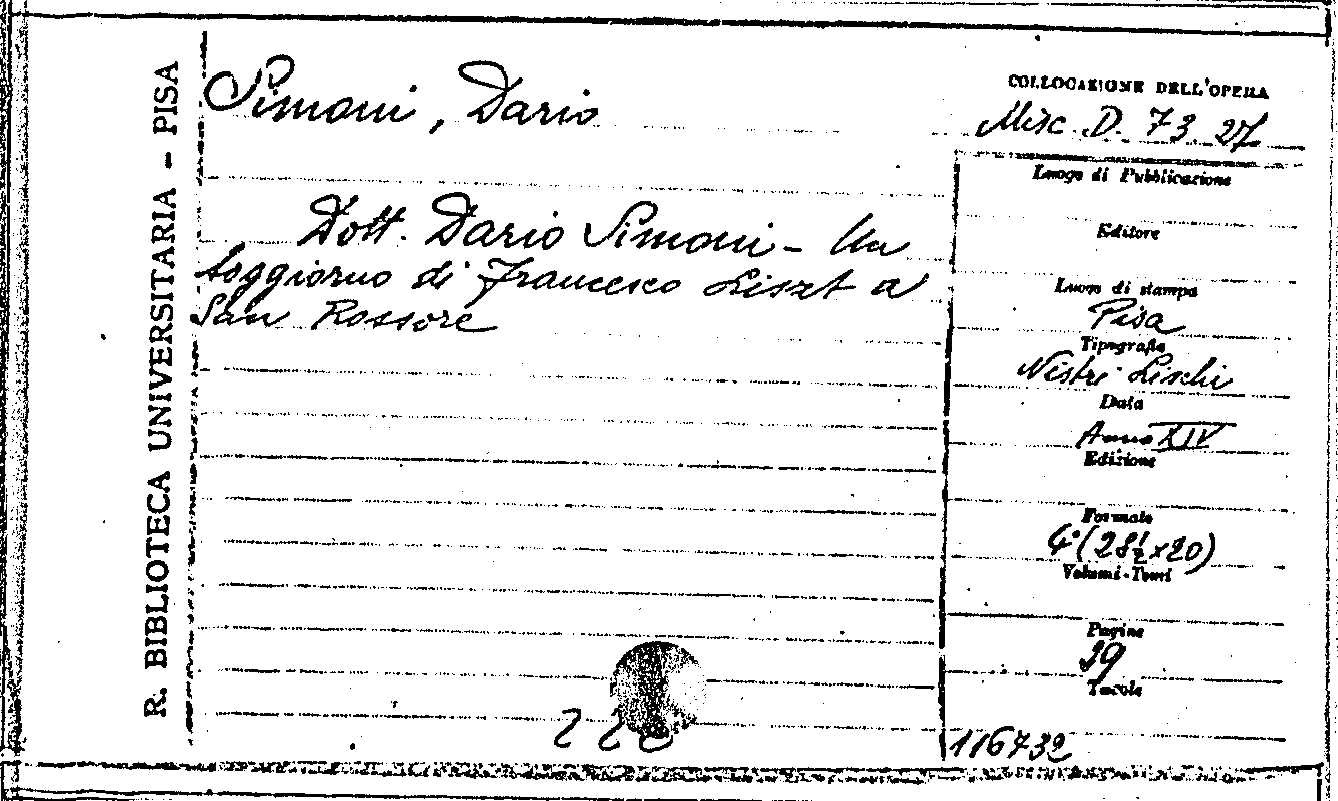 R. BIBLIOTECA UNIVERSITARIA - PISA
Simoni, Dario
Dott. Dario Simoni - Un
soggiorno di Francesco Liszt a
San Rossore
COLLOCAZIONE DELL'OPERA
Misc. D. 73. 27
Luogo di Pubblicazione
Editore
Luogo di stampa
Pisa
Tipografia
Nistri Lischi
Data
Anno XIV
Edizione
Formato
4° (28½ x 20)
Volumi - Tomi
Pagine
Tavole
116732